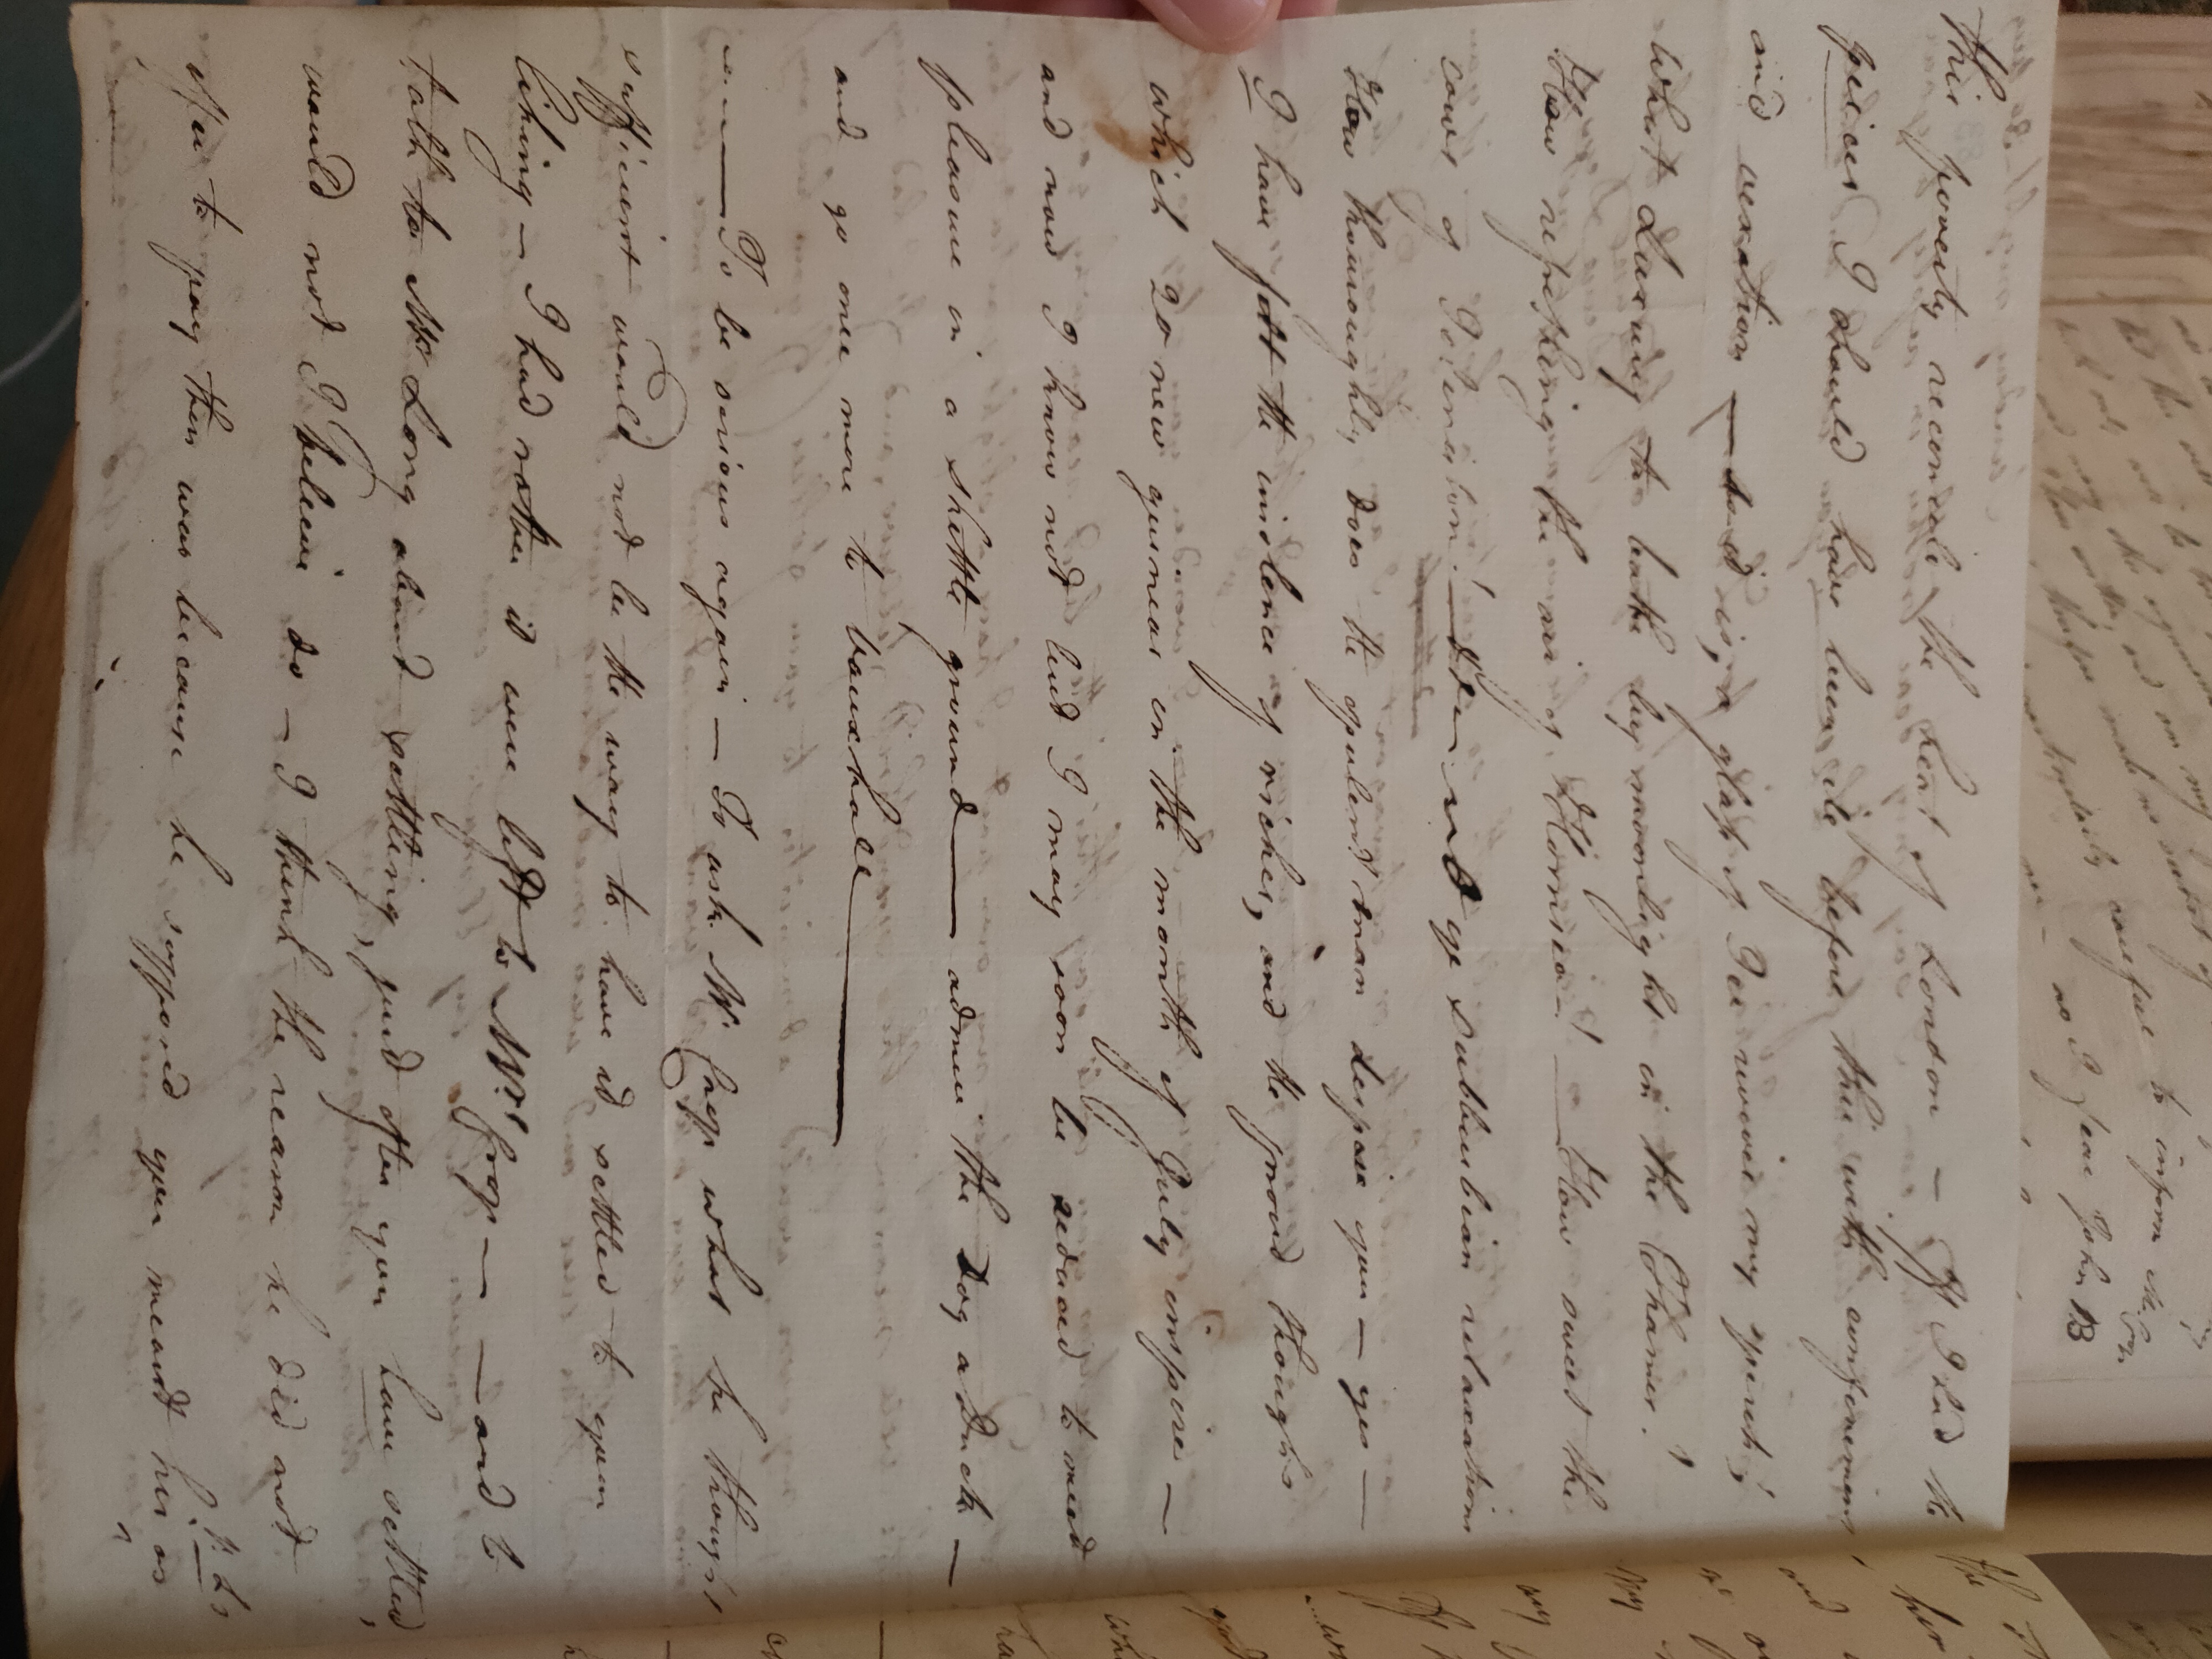 to inform Mr. Crop
careful
no I fear John B
this poverty reconcile the heat of London — If I had the
peices I should have been ile before this with confinement
and vexation — As it is, a glass of Ice revives my spirits!
what Luxury to bathe by moonlight in the Thames!
How refreshing the air of Hornsea! — How sweet the
cows of Islington! — ye subburbian relaxations
How thouroughly does the opulent man despise you — yes —
I have felt the insolence of riches, and the proud thoughts
which 20 new guineas in the month of July inspire —
and now I know not but I may soon be reduced to meet
pleasure in a skettle ground — admire the Dog a Duck —
and go once more to Vauxhall —
— To be serious again — To ask Mr Crop what he thought
sufficient would not be the way to have it settled to your
liking — I had rather it were left to Mrs Crop — — and to
talk to Mr Long about settling, just after you have settled,
would not I beleive do — I think the reason he did not
offer to pay then was because he supposed you meant his ^ as